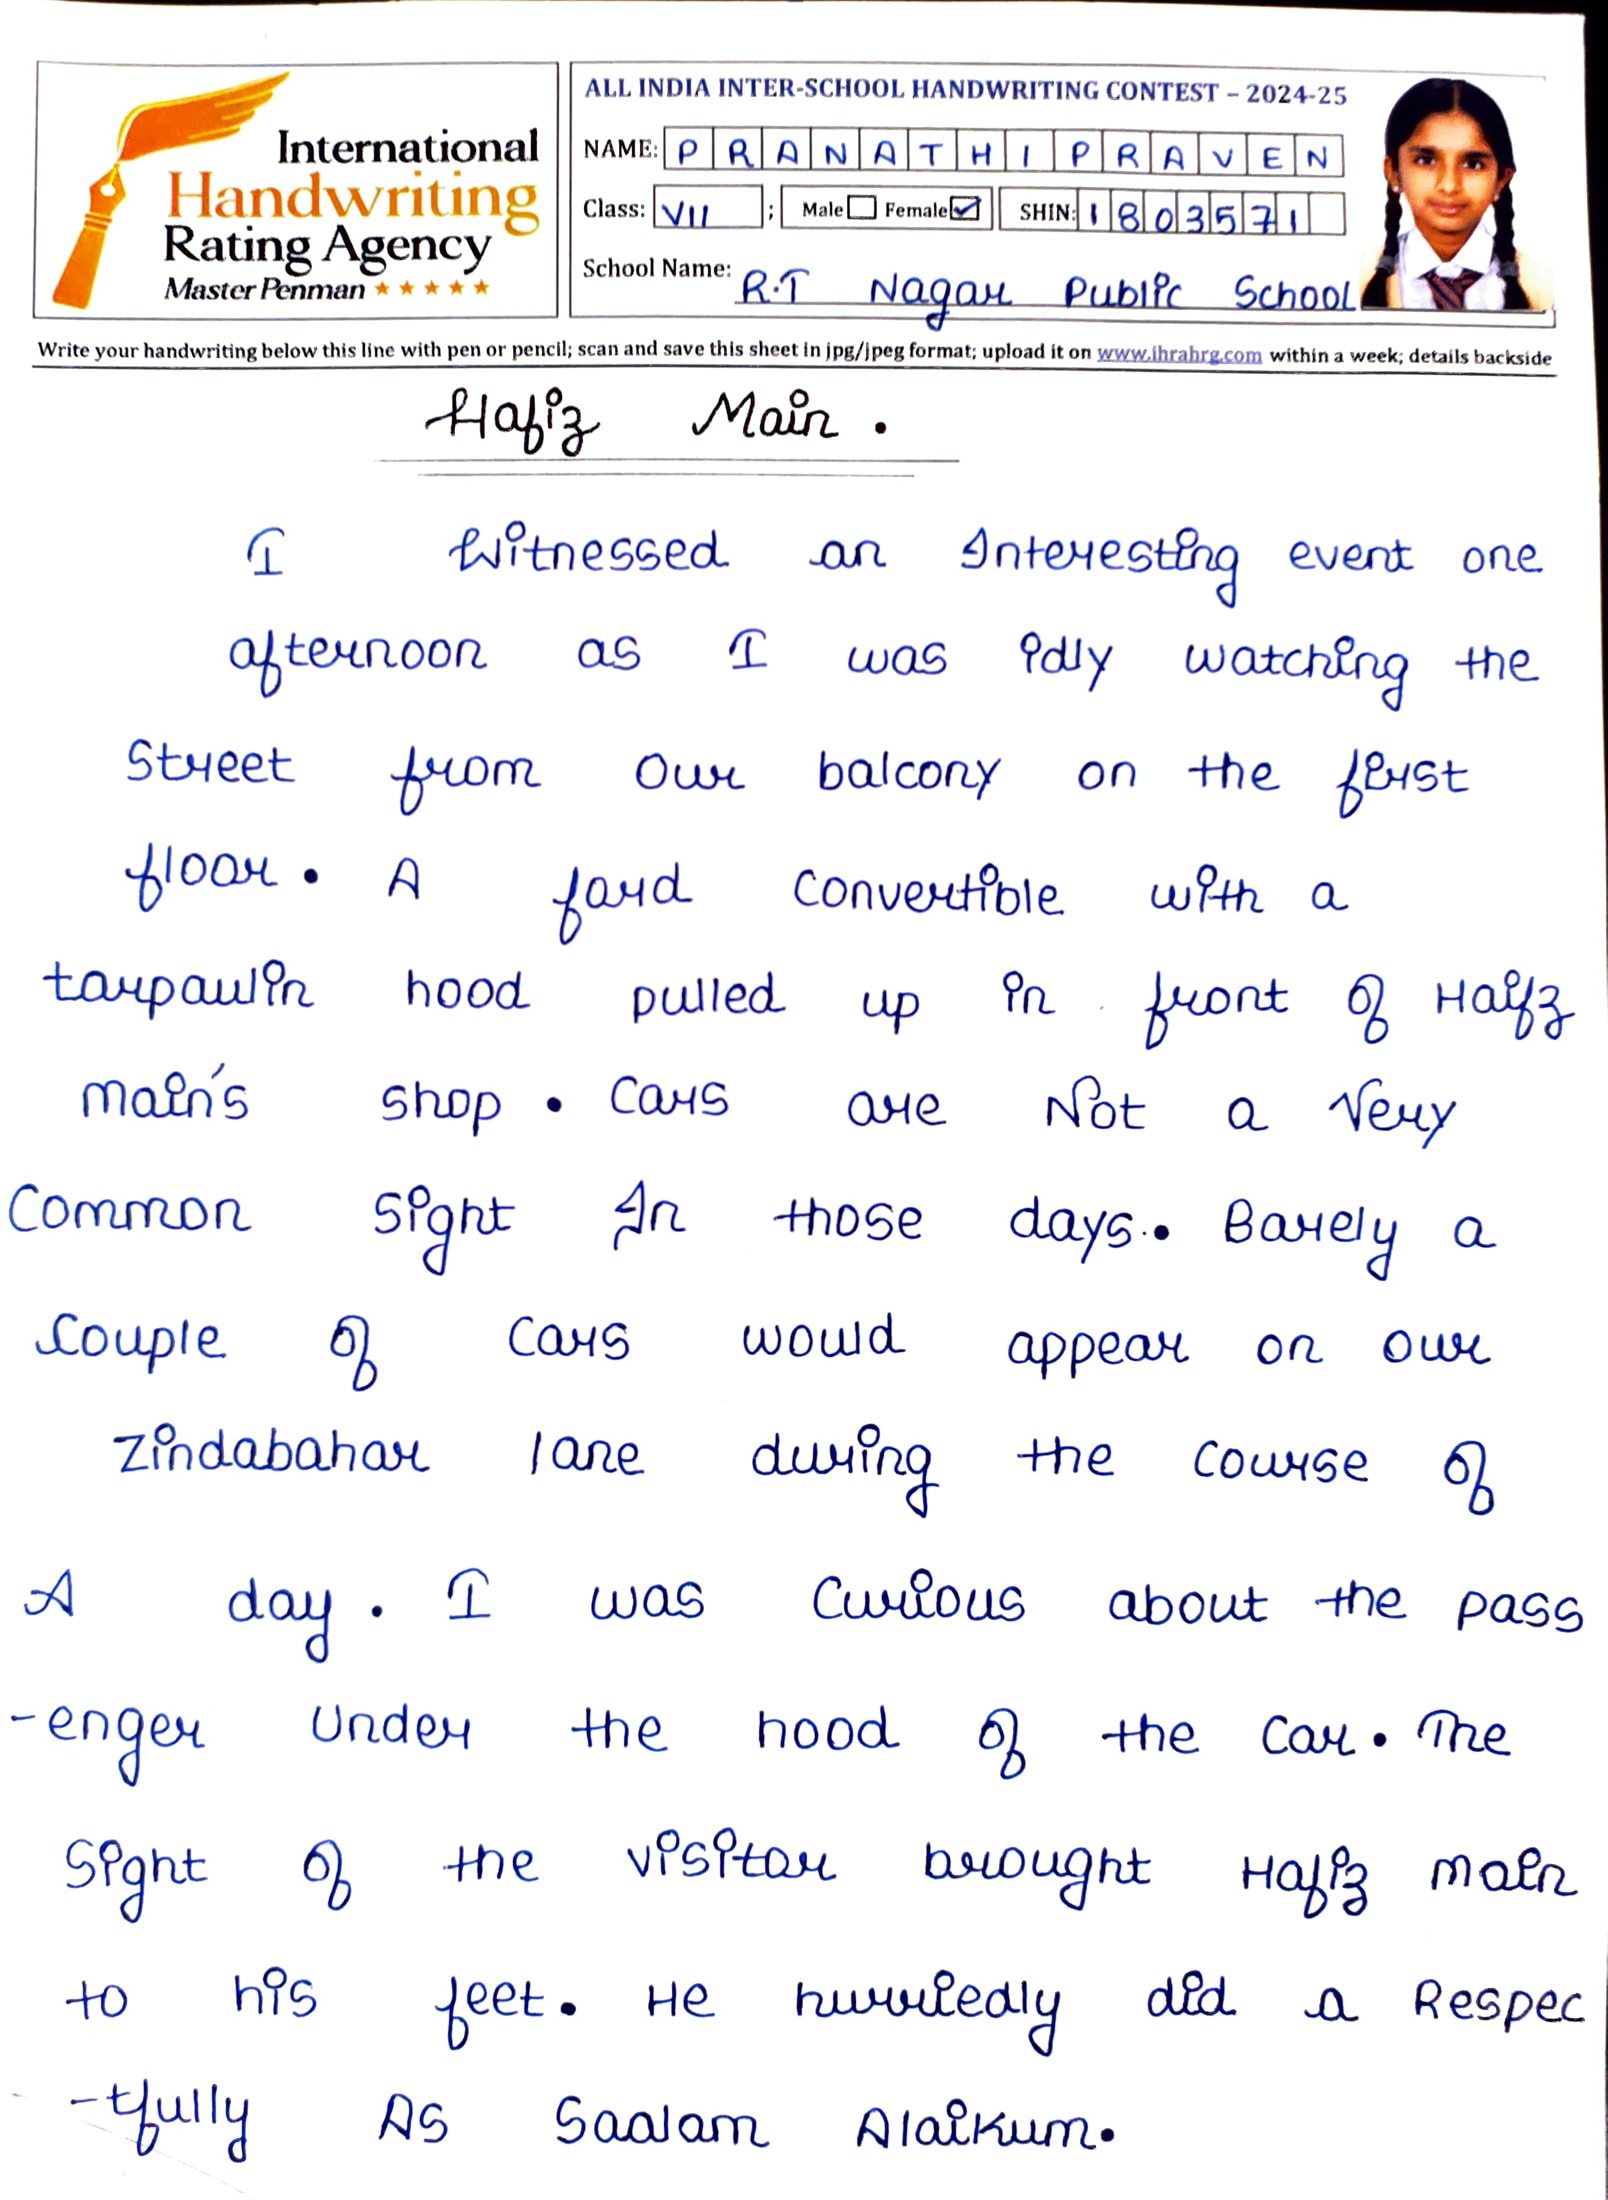 International
Handwriting
Rating Agency
Master Penman
ALL INDIA INTER-SCHOOL HANDWRITING CONTEST – 2024-25
NAME: PRANATHI PRAVEN
Class: VII ; Male Female SHIN: 1803571
School Name: R.T Nagar Public School
Write your handwriting below this line with pen or pencil; scan and save this sheet in jpg/jpeg format; upload it on www.ihrahrg.com within a week; details backside
Hafiz Main .
I Witnessed an Interesting event one
afternoon as I was idly watching the
Street from our balcony on the first
floor. A ford convertible with a
tarpaulin hood pulled up in front of Haifz
main's shop. Cars are Not a Very
Common Sight In those days. Barely a
Couple of Cars would appear on our
Zindabahar lane during the course of
A day. I was Curious about the pass
-enger Under the hood of the Car. The
Sight of the visitor brought Hafiz main
to his feet. He hurriedly did a Respec
-tfully As Saalam Alaikum.